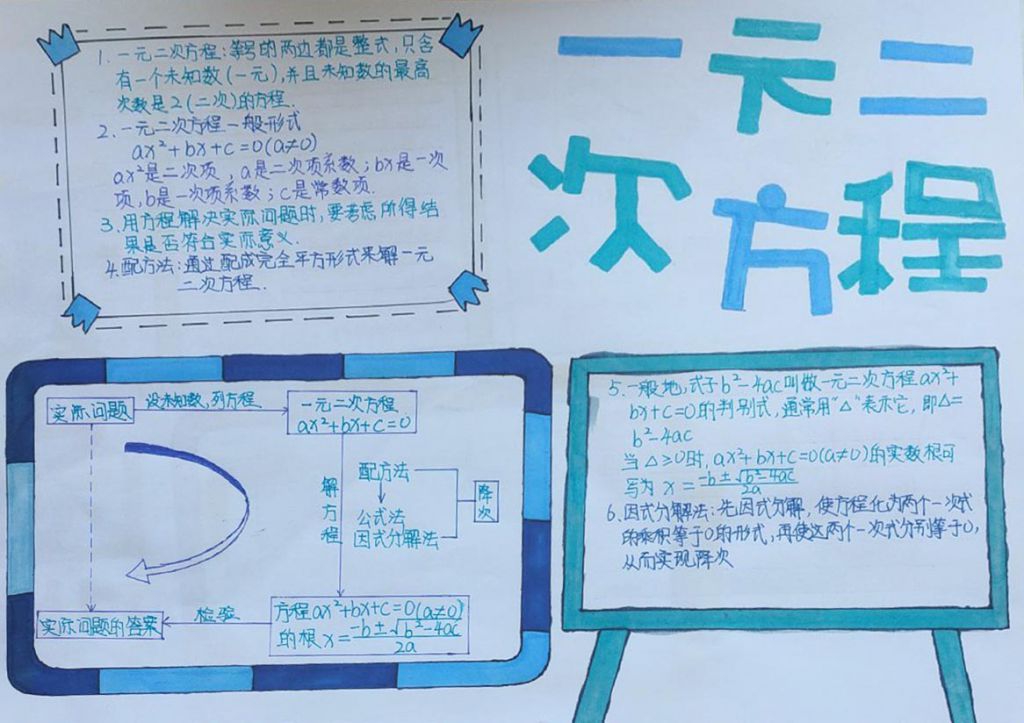 一元二
次方程
1. 一元二次方程:等号的两边都是整式,只含
有一个未知数(一元),并且未知数的最高
次数是2(二次)的方程.
2. 一元二次方程一般形式
ax²+bx+c=0(a≠0)
ax²是二次项,a是二次项系数;bx是一次
项,b是一次项系数;c是常数项.
3. 用方程解决实际问题时,要考虑所得结
果是否符合实际意义.
4. 配方法:通过配成完全平方形式来解一元
二次方程.
实际问题
设未知数,列方程
一元二次方程
ax²+bx+c=0
解方程
配方法
公式法
因式分解法
降次
方程ax²+bx+c=0(a≠0)
的根x=(-b±√(b²-4ac))/2a
检验
实际问题的答案
5. 一般地,式子b²-4ac叫做一元二次方程ax²+
bx+c=0的判别式,通常用"△"表示它,即△=
b²-4ac
当△≥0时,ax²+bx+c=0(a≠0)的实数根可
写为x=(-b±√(b²-4ac))/2a
6. 因式分解法:先因式分解,使方程化为两个一次式
的乘积等于0的形式,再使这两个一次式分别等于0,
从而实现降次